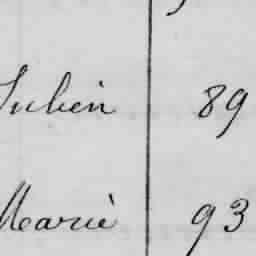 Julien 89
Marie 93